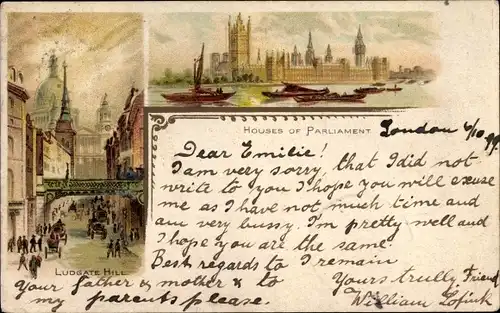 HOUSES OF PARLIAMENT.
London 4/10 99.
Dear Emilie!
I am very sorry, that I did not
write to you I hope you will excuse
me as I have not much time and
am very bussy. I'm pretty well and
I hope you are the same
Best regards to I remain
LUDGATE HILL
Your father & mother & to
my parents please.
Yours trully Friend
William